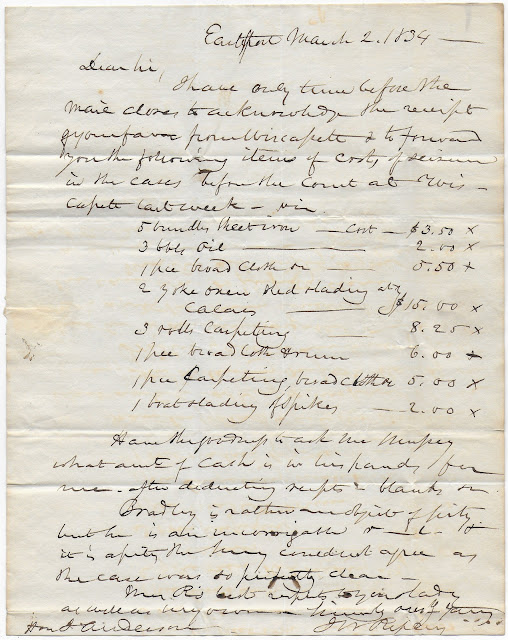 Eastport March 2. 1834 —
Dear Sir,
I have only time before the
mail closes to acknowledge the receipt
of your favor from Wiscassett & to forward
you the following items of costs of seizure
in the cases before the Court at Wis-
cassett last week — viz.
5 bundles sheet iron — Cost — $3.50 x
3 bbls Oil — 2.00 x
1 pce broad cloth — 5.50 x
2 yoke oxen sled & lading at
Calais — $15.00 x
3 rolls Carpeting — 8.25 x
1 pce broad cloth 6.00 x
1 pce Carpeting broadcloth 5.00 x
1 boat & lading of Spikes — 2.00 x
Have the goodness to ask Mr
what amt of Cash is in his hands for
me — after deducting receipts & blanks
Bradley is rather an object of pity
but he is an incorrigible r—l— &
it is a pity the Jury could not agree as
the case was so perfectly clear —
Mrs R's best respects to your lady
as well as my own — yours
Hon J Anderson